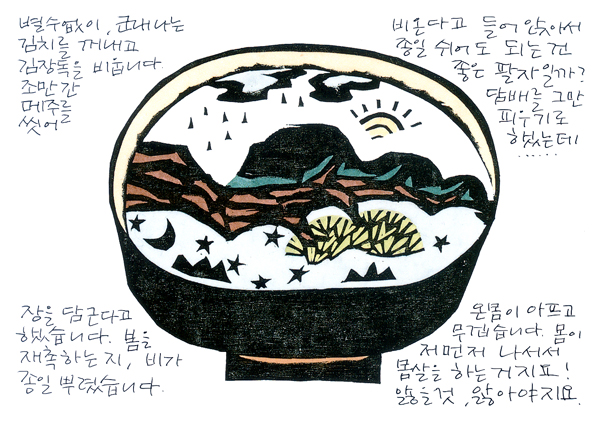 별수없이, 군내나는
김치를 꺼내고
김장독을 비웁니다.
조만간
메주를
씻어
장을 담근다고
했습니다. 봄을
재촉하는지, 비가
종일 뿌렸습니다.
비온다고 들어앉아서
종일 쉬어도 되는건
좋은 팔자일까?
담배를 그만
피우기로
했는데
......
온몸이 아프고
무겁습니다. 몸이
저먼저 나서서
봄살을 하는거지요!
앓을것, 앓아야지요.